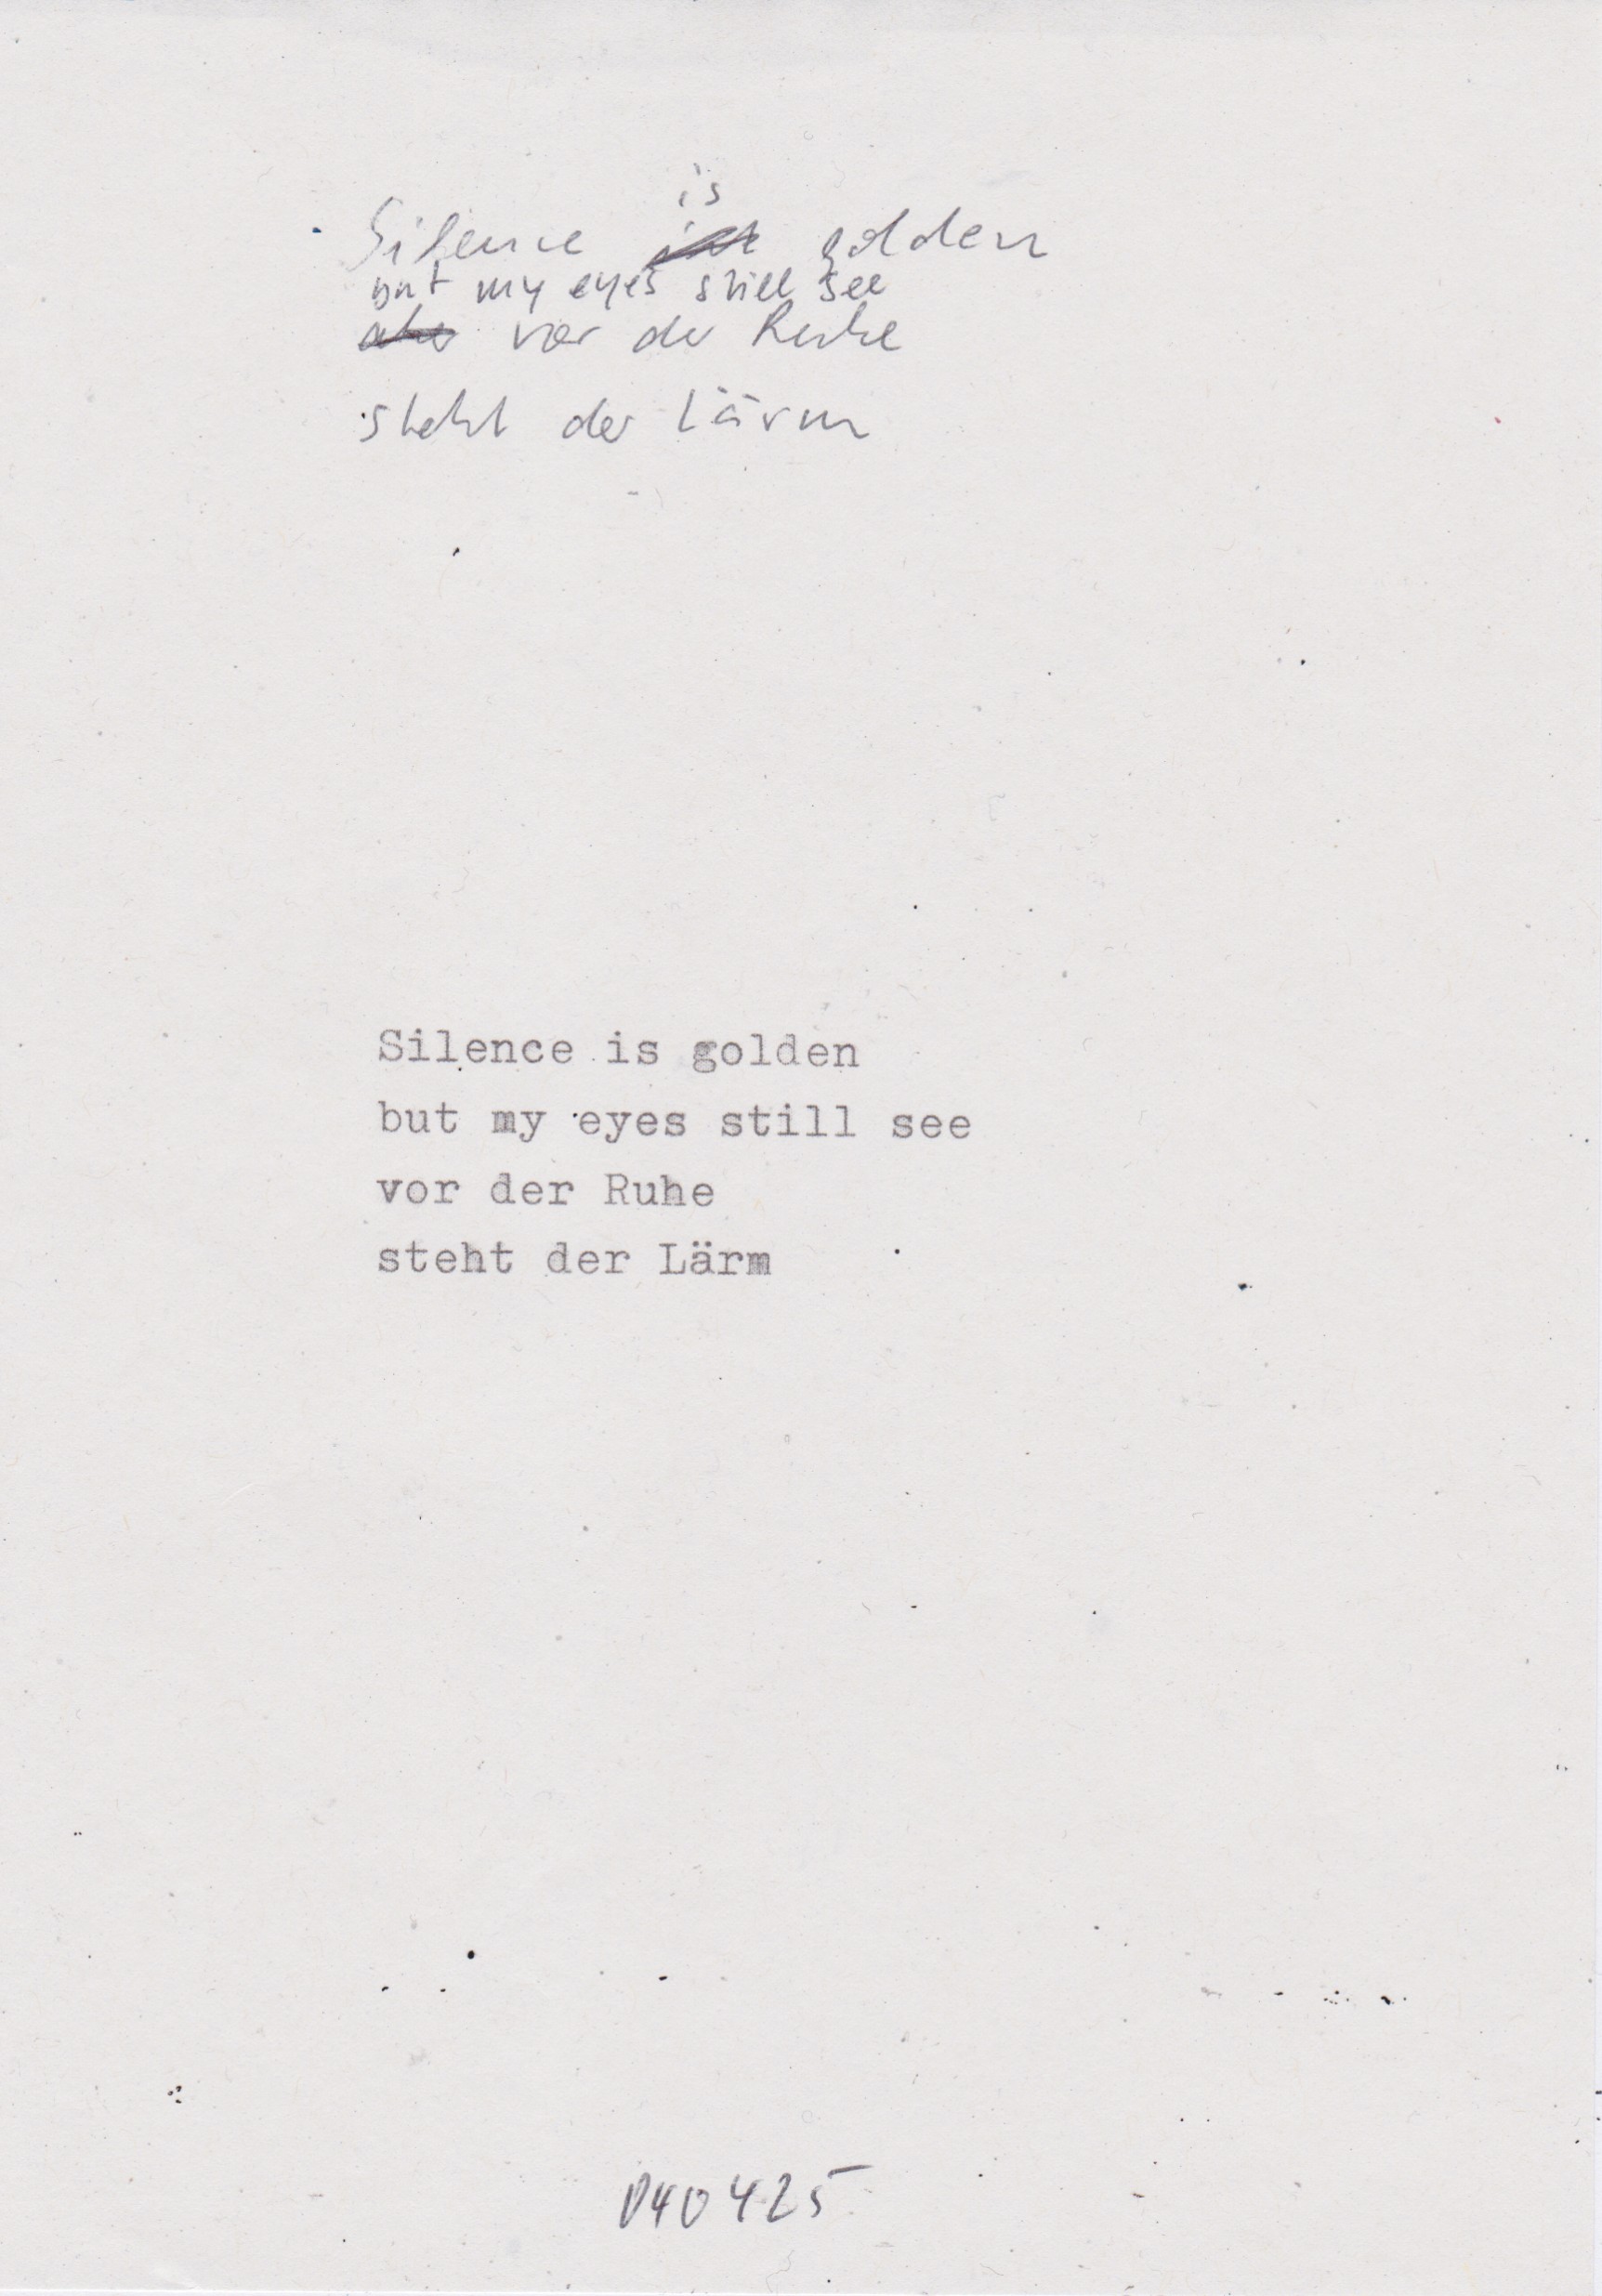 is
Silence ist golden
but my eyes still see
aber vor der Ruhe
steht der Lärm
Silence is golden
but my eyes still see
vor der Ruhe
steht der Lärm
040425